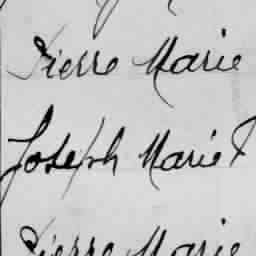 Pierre Marie
Joseph Marie
Pierre Marie